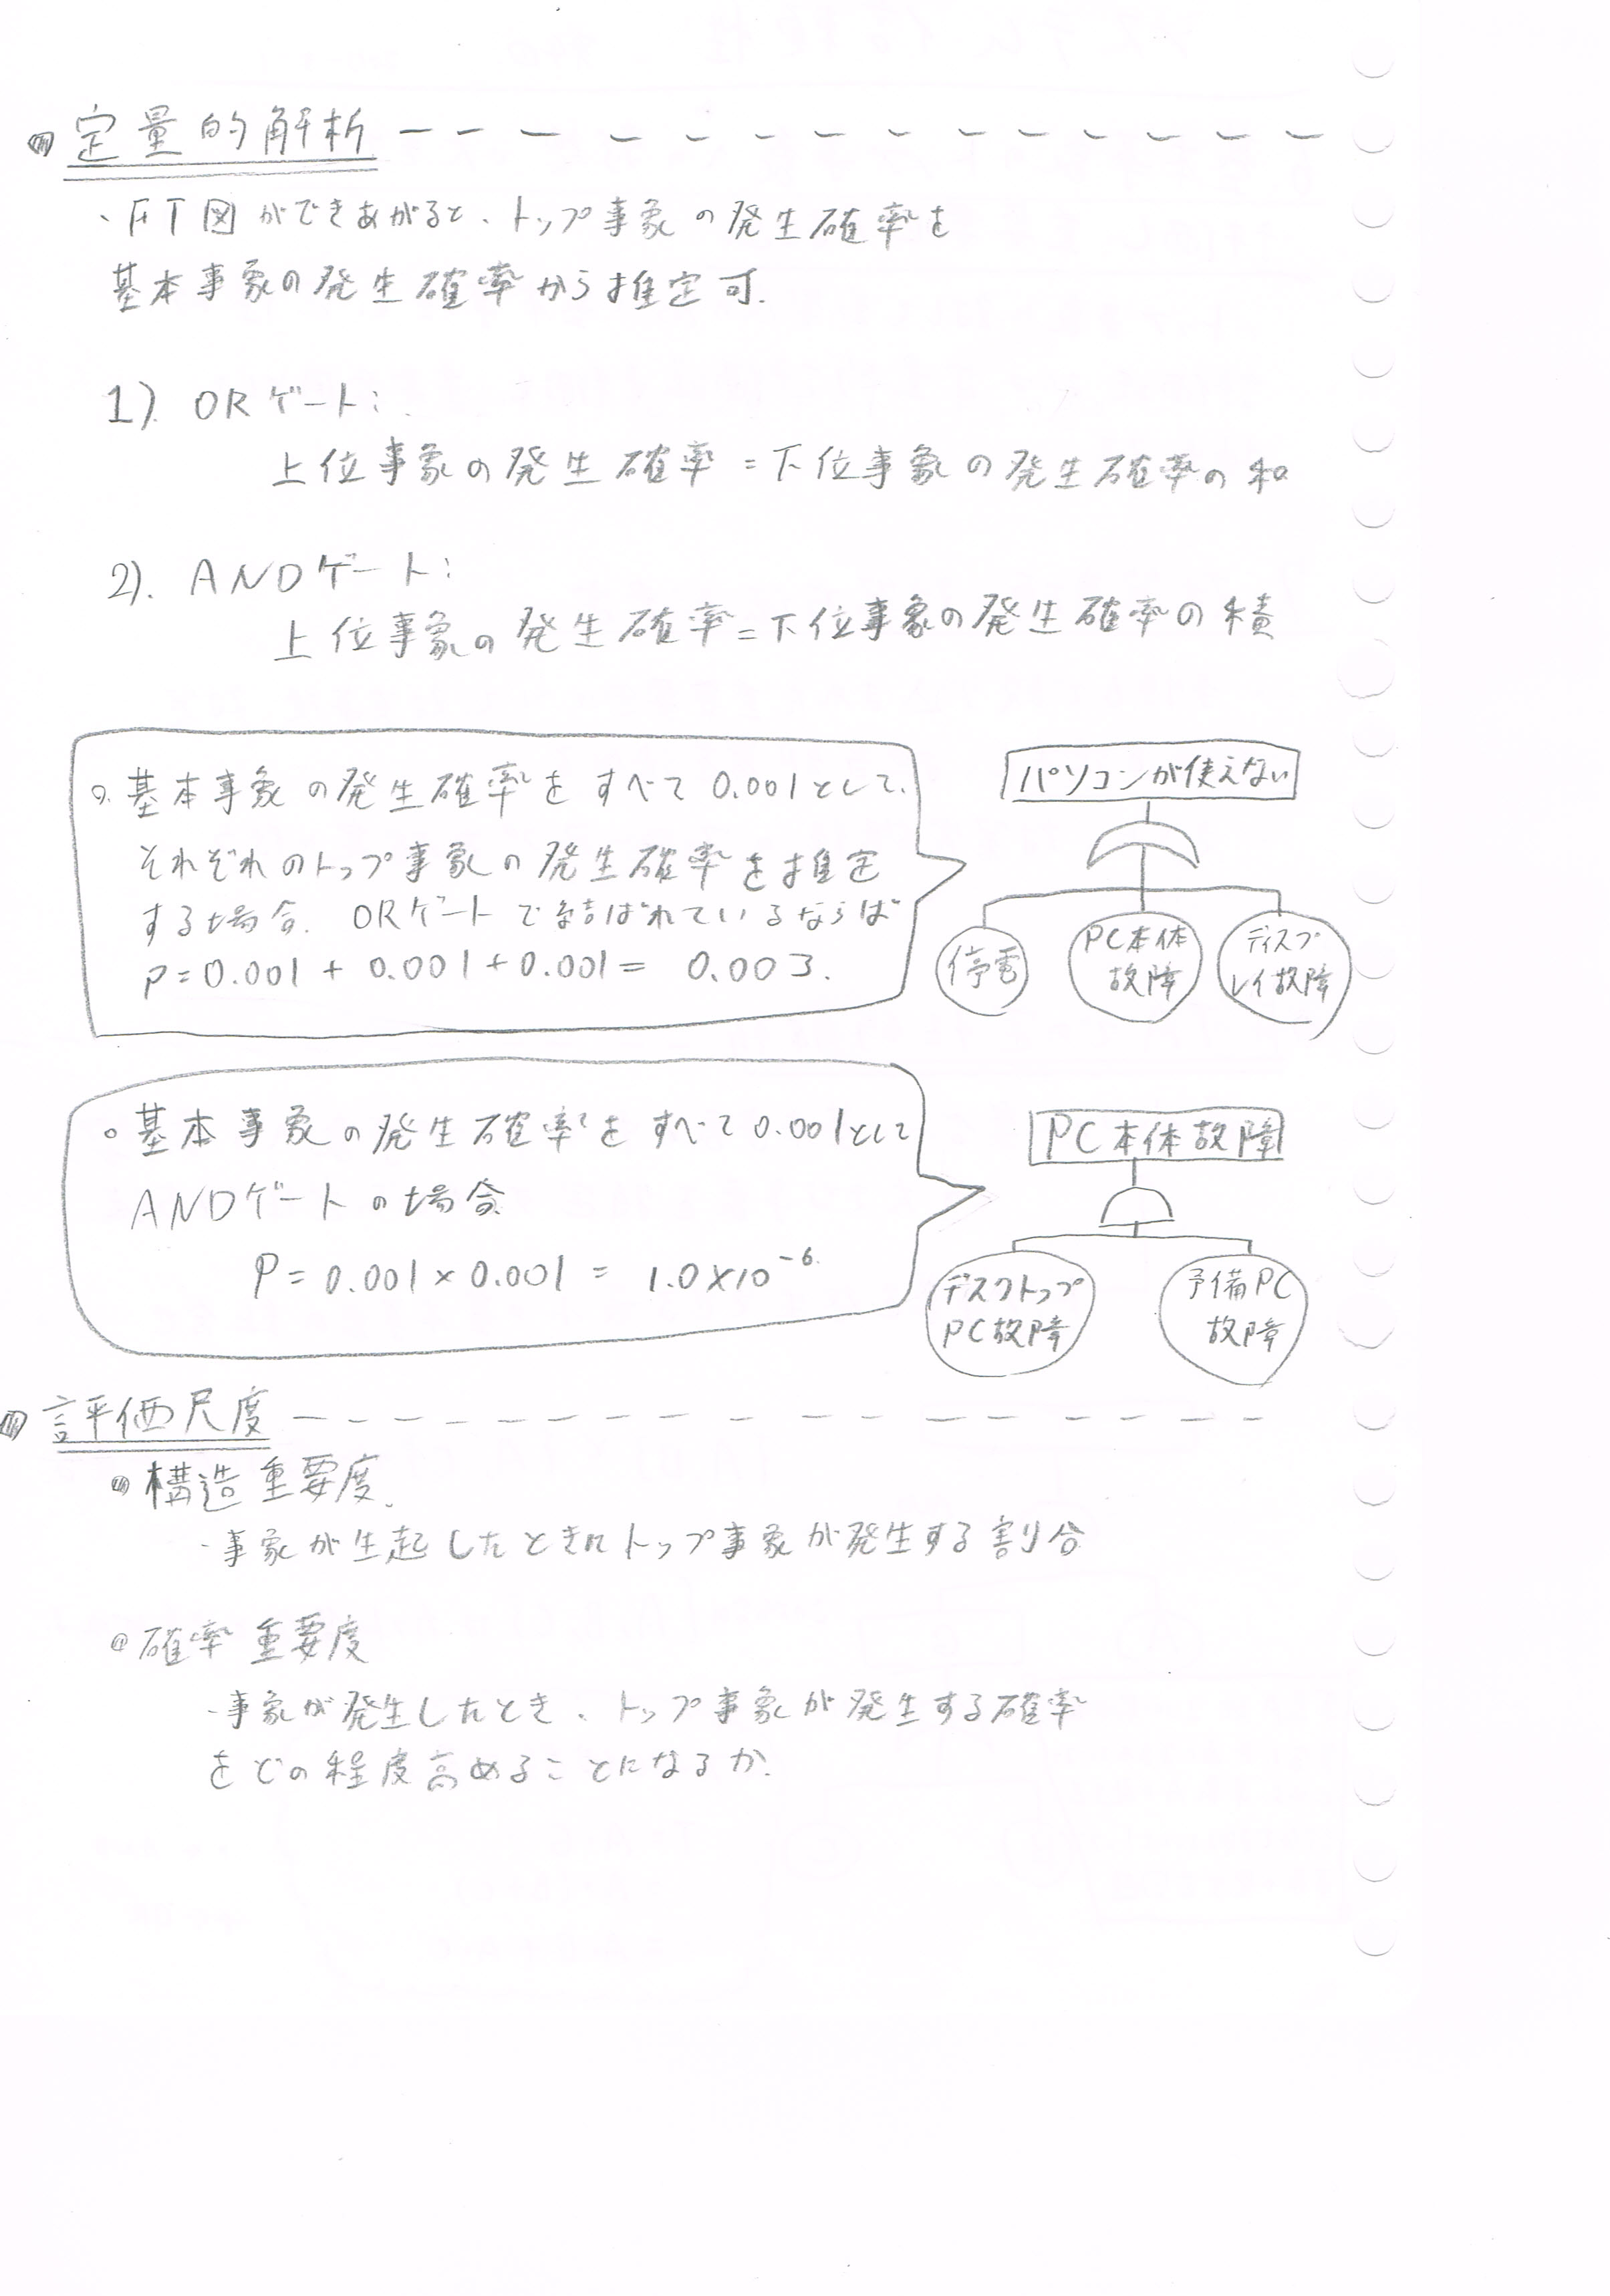 定量的解析
・FT図ができあがると、トップ事象の発生確率を
基本事象の発生確率から推定可.
1). ORゲート:
上位事象の発生確率=下位事象の発生確率の和
2). ANDゲート:
上位事象の発生確率=下位事象の発生確率の積
○. 基本事象の発生確率をすべて0.001として、
それぞれのトップ事象の発生確率を推定
する場合. ORゲートで結ばれているならば
P=0.001+0.001+0.001= 0.003.
パソコンが使えない
停電
PC本体
故障
ディスプ
レイ故障
○基本事象の発生確率をすべて0.001として
ANDゲートの場合
P=0.001×0.001= 1.0×10⁻⁶.
PC本体故障
デスクトップ
PC故障
予備PC
故障
評価尺度
構造重要度.
・事象が生起したときにトップ事象が発生する割合
確率重要度
・事象が発生したとき、トップ事象が発生する確率
をどの程度高めることになるか.